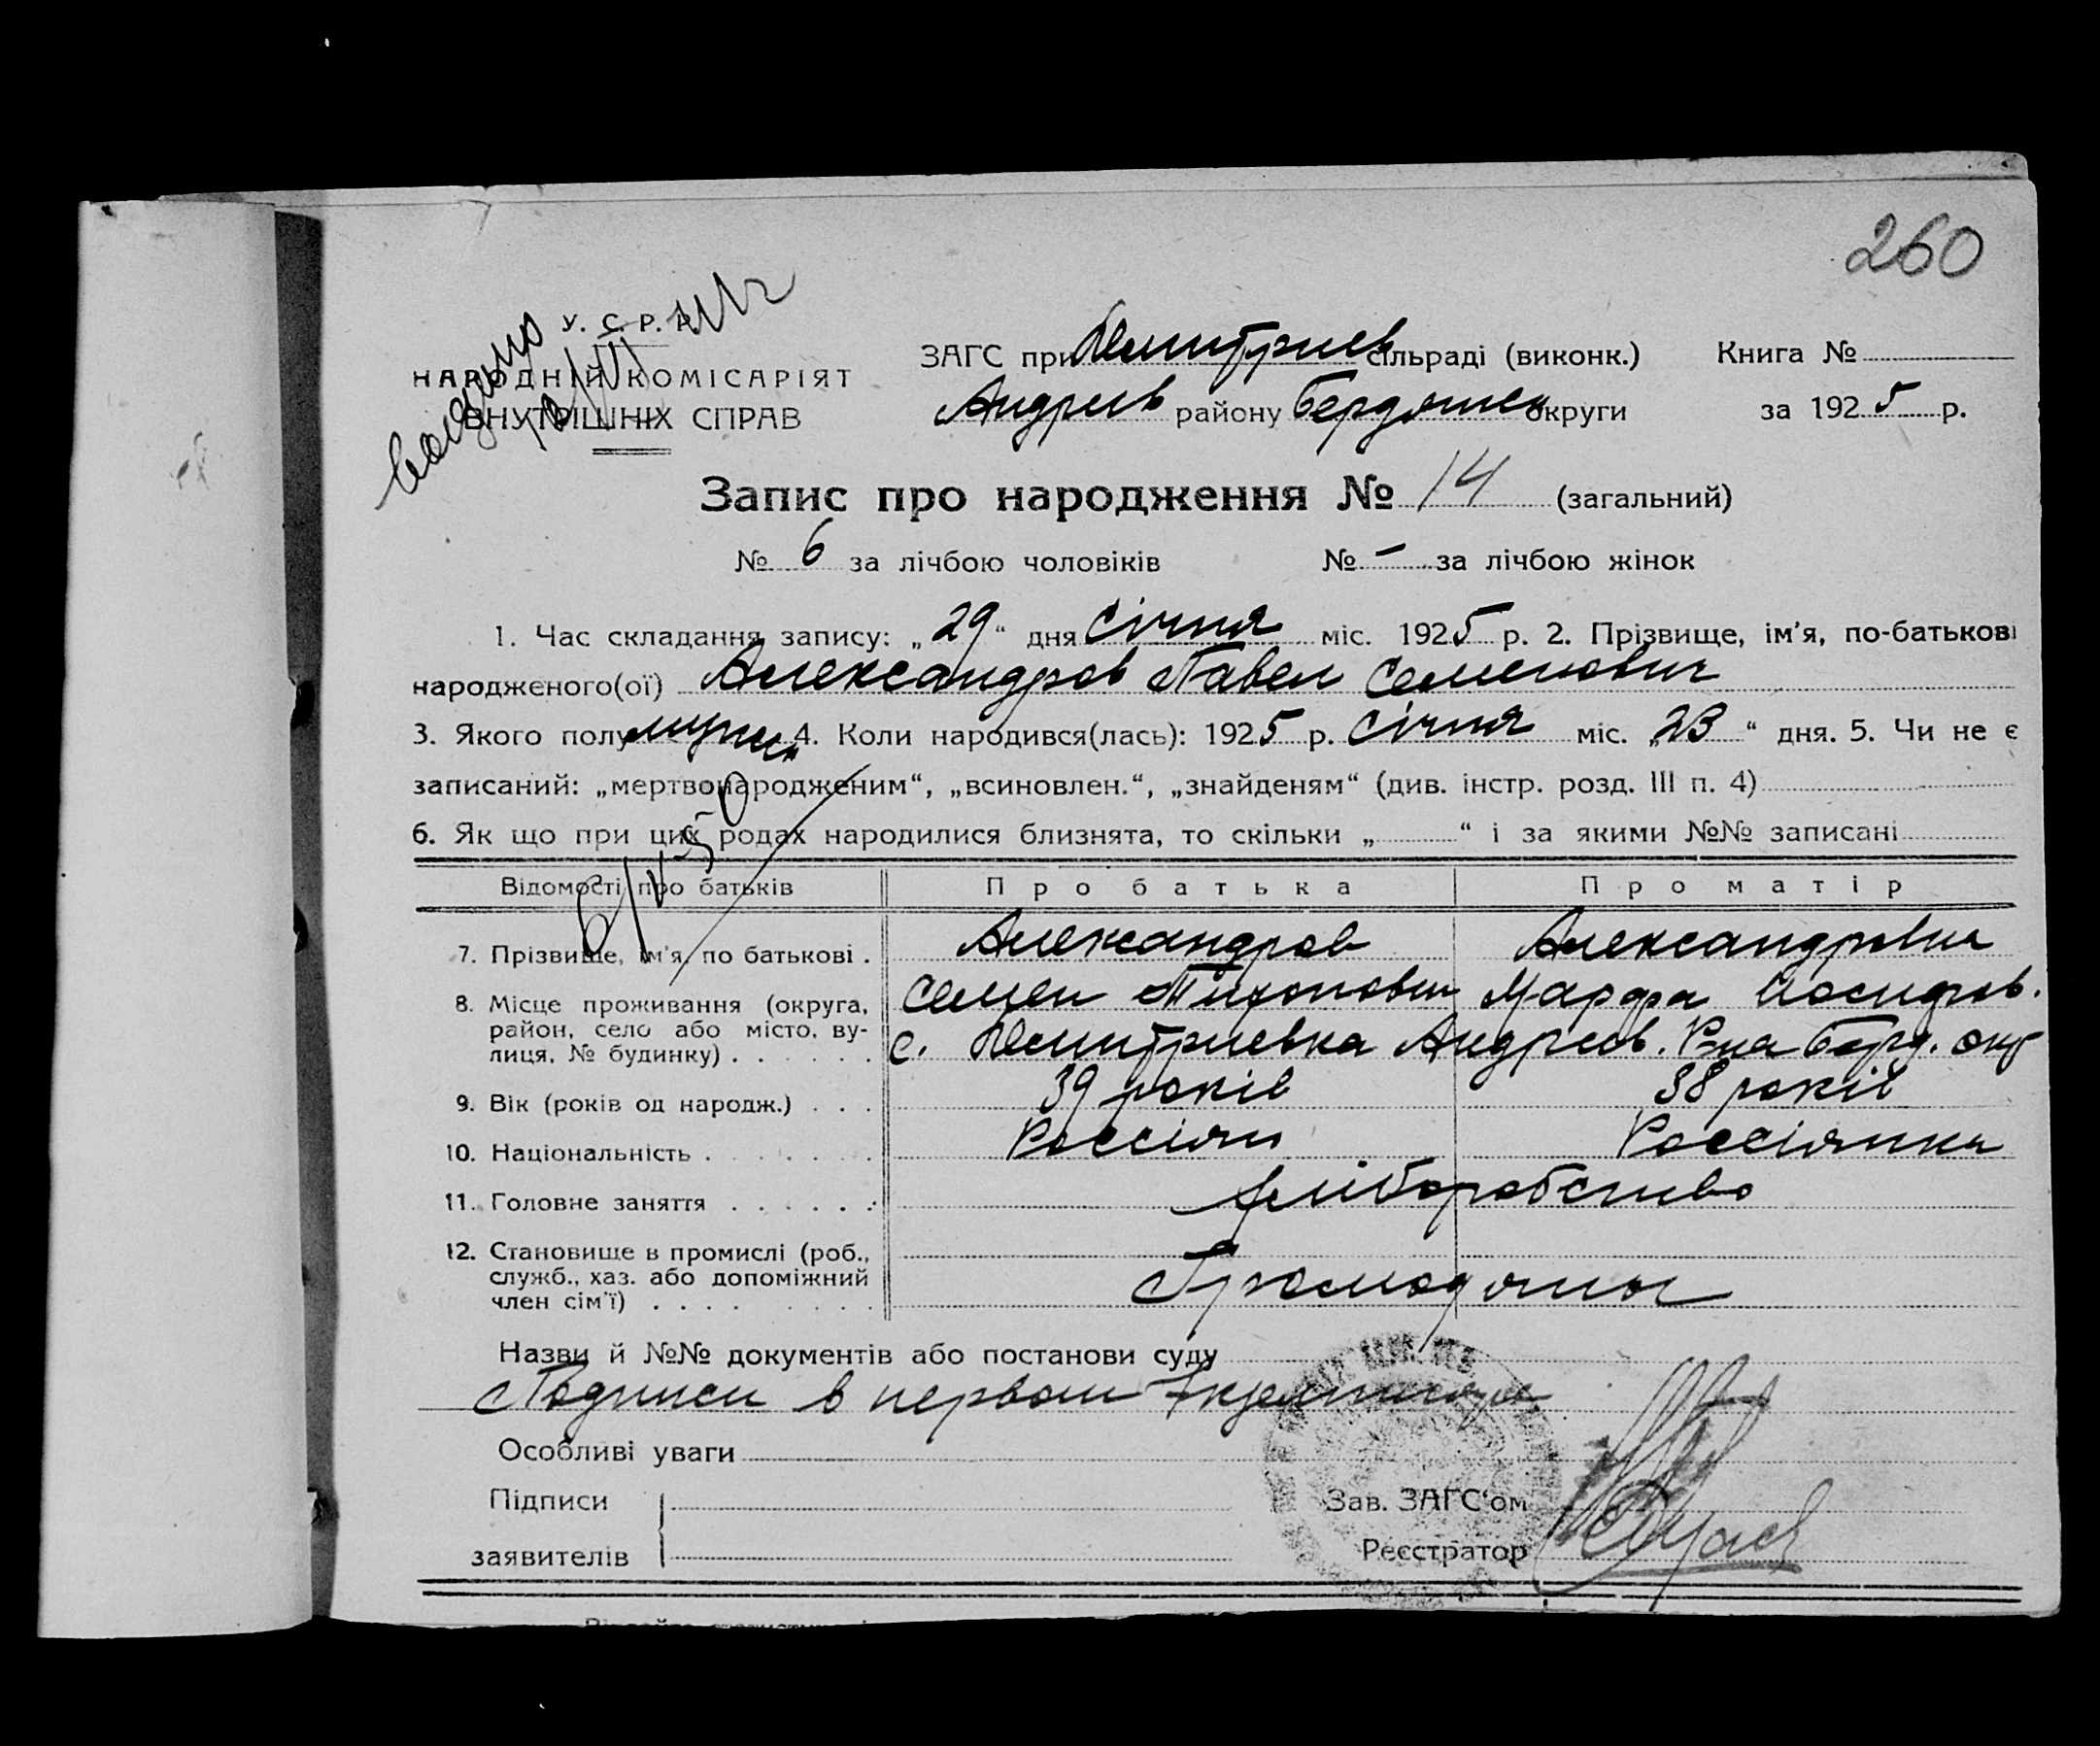 260
У. С. Р. Р.
НАРОДНІЙ КОМІСАРІЯТ
ВНУТРІШНІХ СПРАВ
ЗАГС при Дмитриев сільраді (виконк.) Книга №
Андреев району Бердянск округи за 1925 р.
Запис про народження № 14 (загальний)
№ 6 за лічбою чоловіків № – за лічбою жінок
1. Час складання запису: „29“ дня Січня міс. 1925 р. 2. Прізвище, ім'я, по-батькові
народженого(ої) Александров Павел Семенович
3. Якого полу мужск 4. Коли народився(лась): 1925 р. Січня міс. „23“ дня. 5. Чи не є
записаний: „мертвонародженим“, „всиновлен.“, „знайденям“ (див. інстр. розд. III п. 4)
6. Як що при цих родах народилися близнята, то скільки „ “ і за якими №№ записані
Відомості про батьків Про батька Про матір
7. Прізвище, ім'я, по батькові . Александров Александровна
8. Місце проживання (округа, район, село або місто, вулиця, № будинку) . . . . . .
Семен Тихонович Марфа
с. Дмитриевка Андреев. Р-на Берд. окр
9. Вік (років од народж.) . . . 39 років 38 років
10. Національність . . . . . . . Россіян Россіянка
11. Головне заняття . . . . . . Хліборобство
12. Становище в промислі (роб.,
служб., хаз. або допоміжний
член сім'ї) . . . . . . . . . Громодяны
Назви й №№ документів або постанови суду
Подписи в первом Екземпляре
Особливі уваги
Підписи Зав. ЗАГС'ом
заявителів Реєстратор